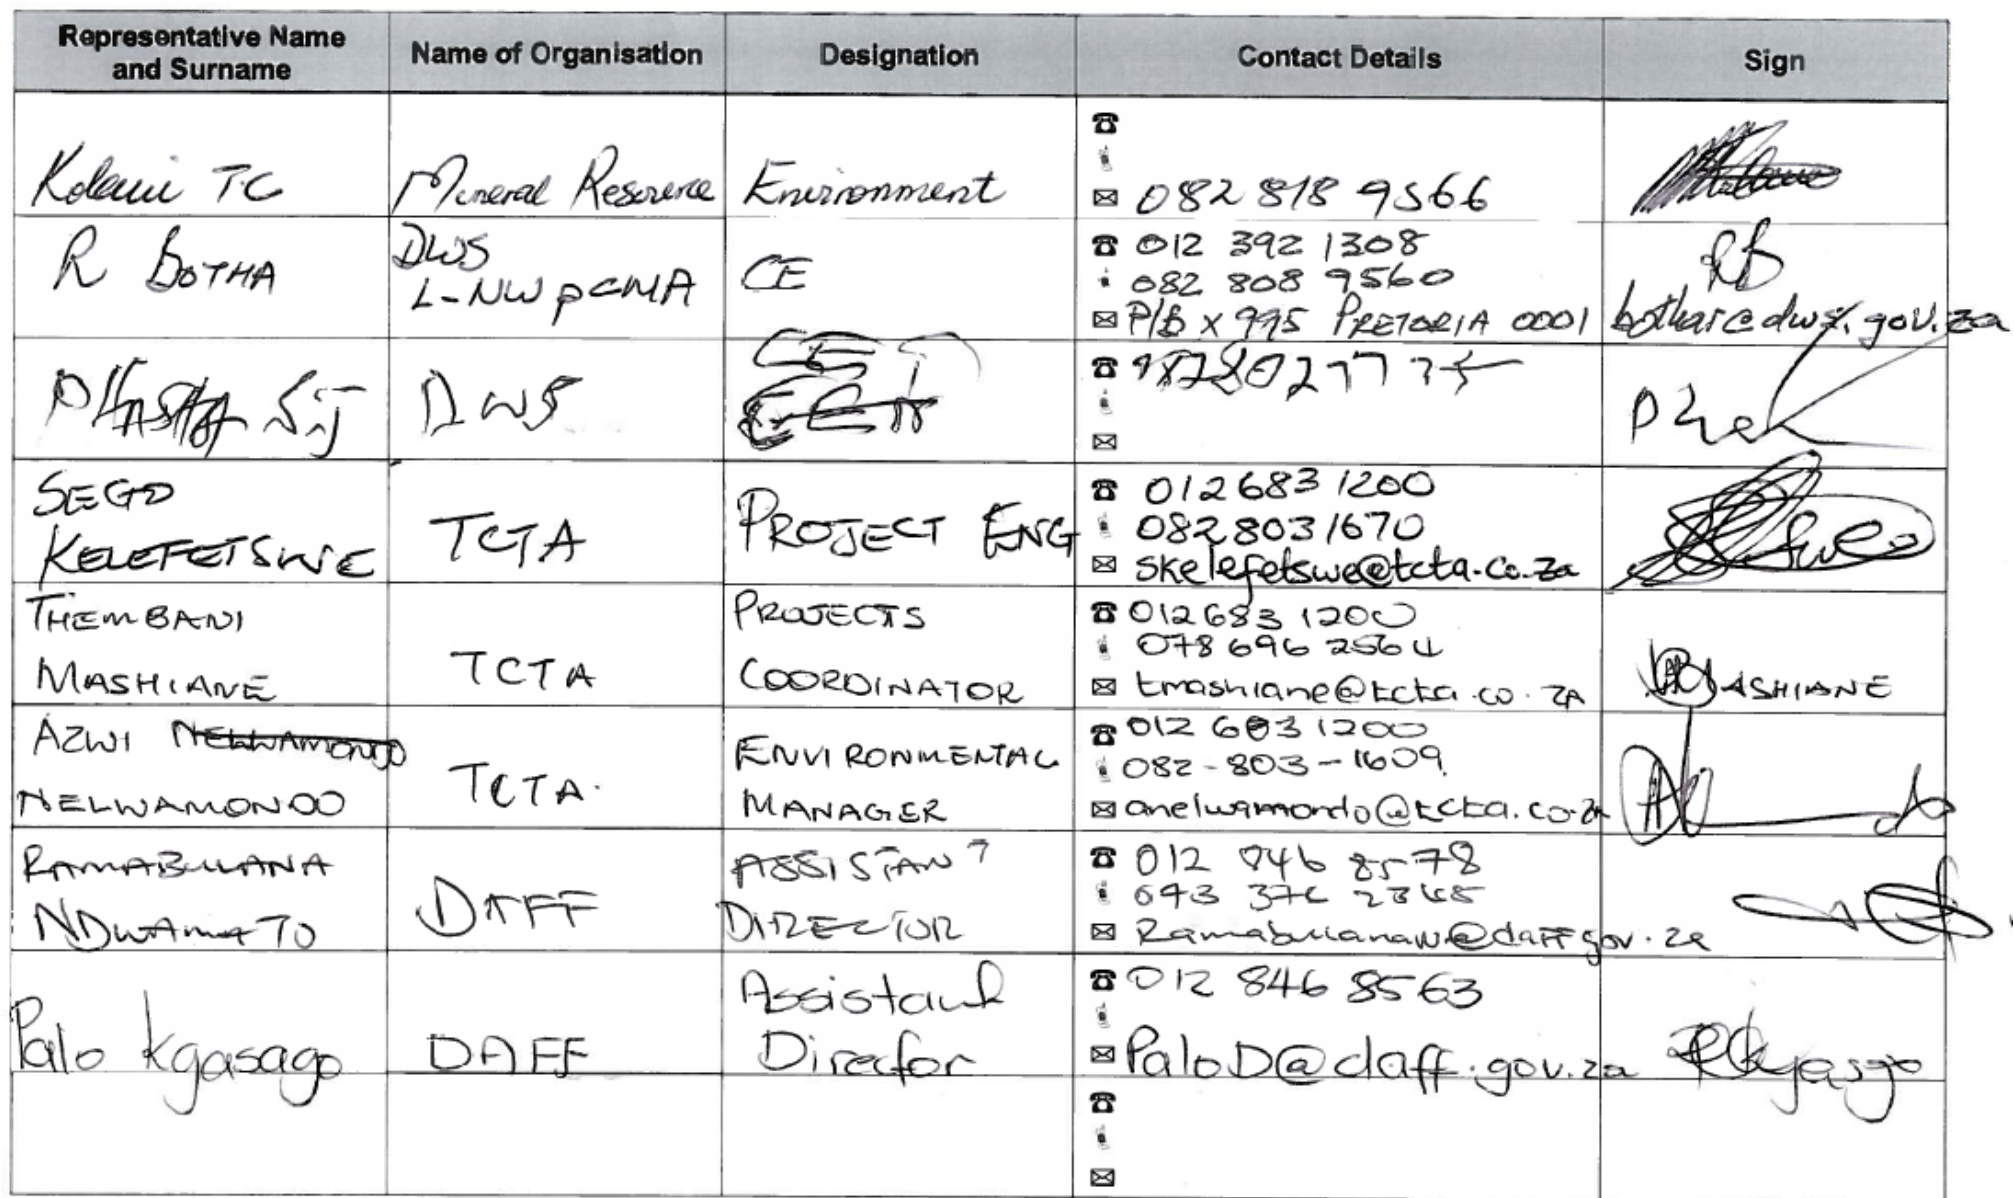 Representative Name
and Surname
Name of Organisation
Designation
Contact Details
Sign
Kolani TC
Mineral Resource
Environment
082 818 9566
R BOTHA
DWS
L-NW pCMA
CE
012 392 1308
082 808 9560
P/B X 995 PRETORIA 0001
RB
bothar@dws.gov.za
S.J
DWS
SEGO
KELEFETSWE
TCTA
PROJECT ENG
012 683 1200
082 803 1670
skelefetswe@tcta.co.za
THEMBANI
MASHIANE
TCTA
PROJECTS
COORDINATOR
012 683 1200
078 696 2564
tmashiane@tcta.co.ZA
MASHIANE
AZWI
NELWAMONDO
TCTA.
ENVIRONMENTAL
MANAGER
012 683 1200
082-803-1609
anelwamondo@tcta.co.za
RAMABULANA
NDWAMATO
DAFF
ASSISTANT
DIRECTOR
012 846 8578
Ramabulanaw@daff.gov.za
Palo Kgasago
DAFF
Assistant
Director
012 846 8563
PaloD@daff.gov.za
PKgasago